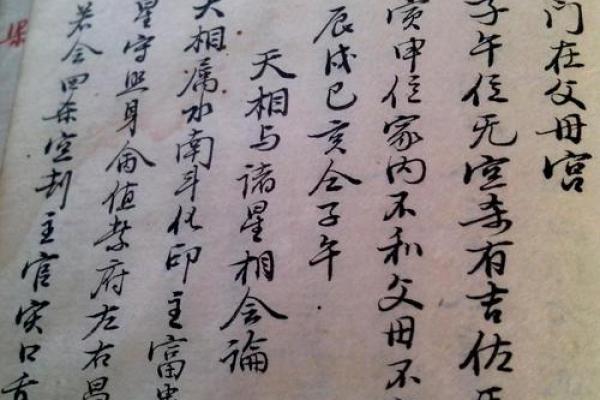 门在父母宫
子午位无空杀有吉佐
寅申位家内不和父母不
辰戌巳亥仝子午
天相与诸星相会論
天相属水南斗化印主富贵
星守照身命值紫府左右昌
若会四杀空刦主官灾口舌